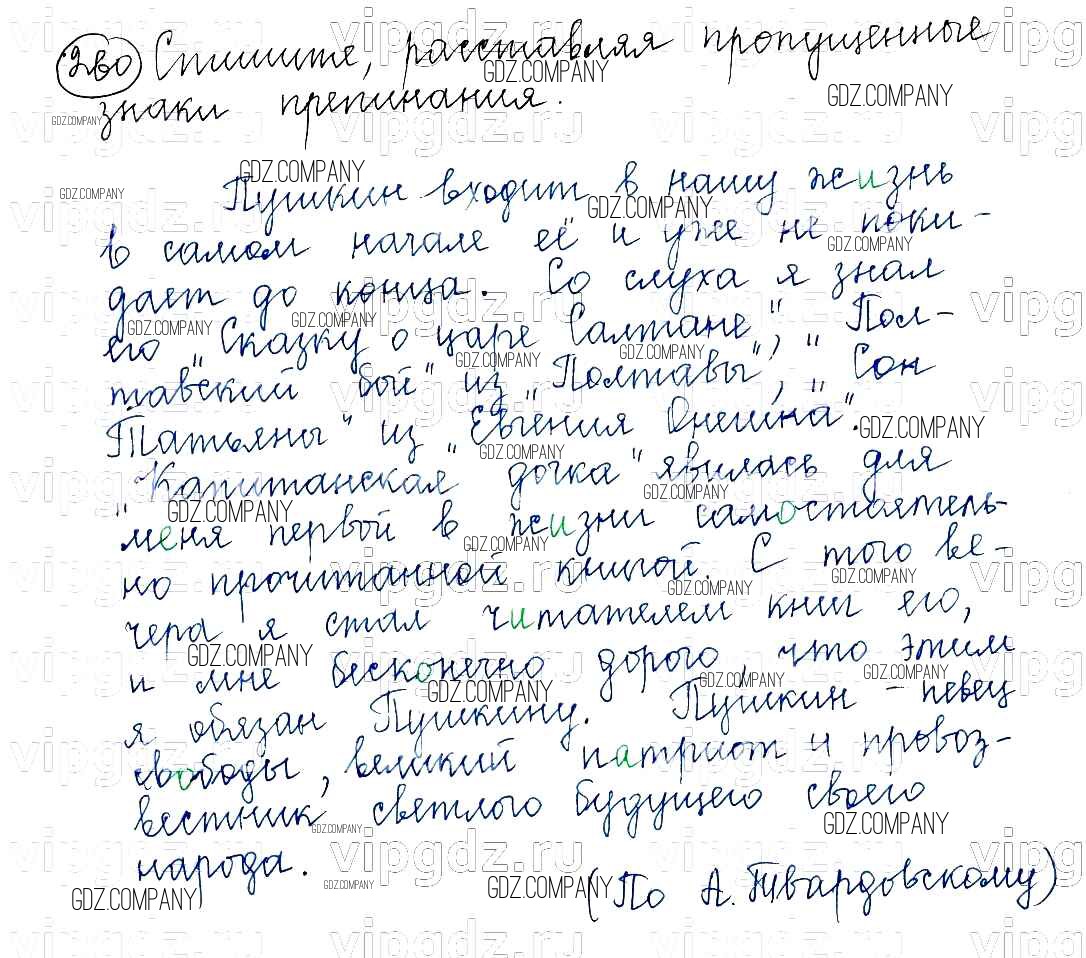 260 Спишите, расставляя пропущенные
знаки препинания.
Пушкин входит в нашу жизнь
в самом начале её и уже не поки-
дает до конца. Со слуха я знал
его „Сказку о царе Салтане", „Пол-
тавский бой" из „Полтавы", „Сон
Татьяны" из „Евгения Онегина".
„Капитанская дочка" явилась для
меня первой в жизни самостоятель-
но прочитанной книгой. С того ве-
чера я стал читателем книг его,
и мне бесконечно дорого, что этим
я обязан Пушкину. Пушкин - певец
свободы, великий патриот и провоз-
вестник светлого будущего своего
народа.
(По А. Твардовскому)